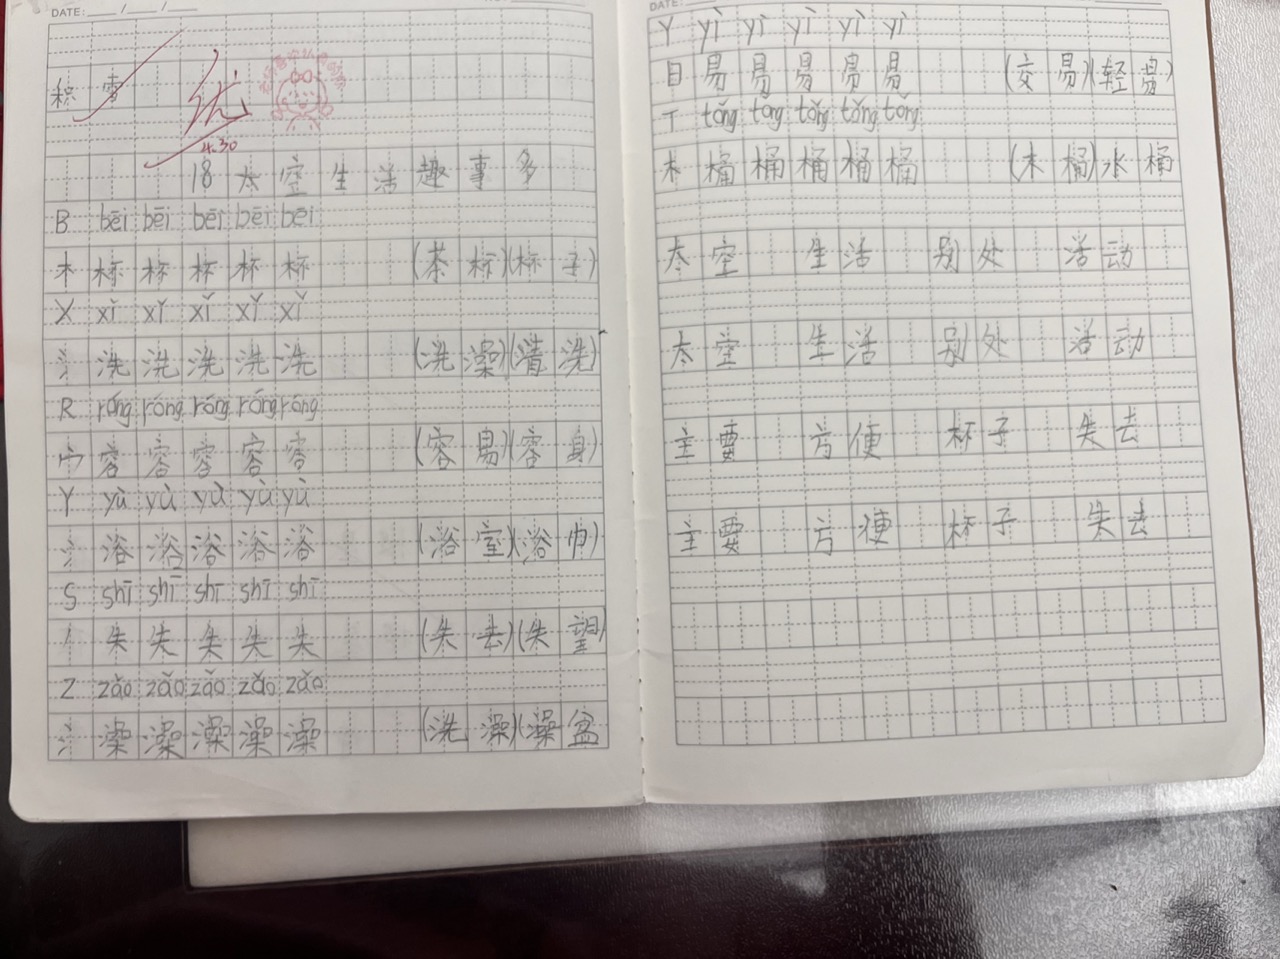 DATE: / /
积雪 优
4.30
18 太空生活趣事多
B bēi bēi bēi bēi bēi
木 杯 杯 杯 杯 杯 (茶杯)(杯子)
X xǐ xǐ xǐ xǐ xǐ
氵 洗 洗 洗 洗 洗 (洗澡)(清洗)
R róng róng róng róng róng
宀 容 容 容 容 容 (容易)(容身)
Y yù yù yù yù yù
氵 浴 浴 浴 浴 浴 (浴室)(浴巾)
S shī shī shī shī shī
丿 失 失 失 失 失 (失去)(失望)
Z zǎo zǎo zǎo zǎo zǎo
氵 澡 澡 澡 澡 澡 (洗澡)(澡盆
DATE:
Y yì yì yì yì yì
日 易 易 易 易 易 (交易)(轻易)
T tǒng tǒng tǒng tǒng tǒng
木 桶 桶 桶 桶 桶 (木桶)水桶
太空 生活 别处 活动
太空 生活 别处 活动
主要 方便 杯子 失去
主要 方便 杯子 失去